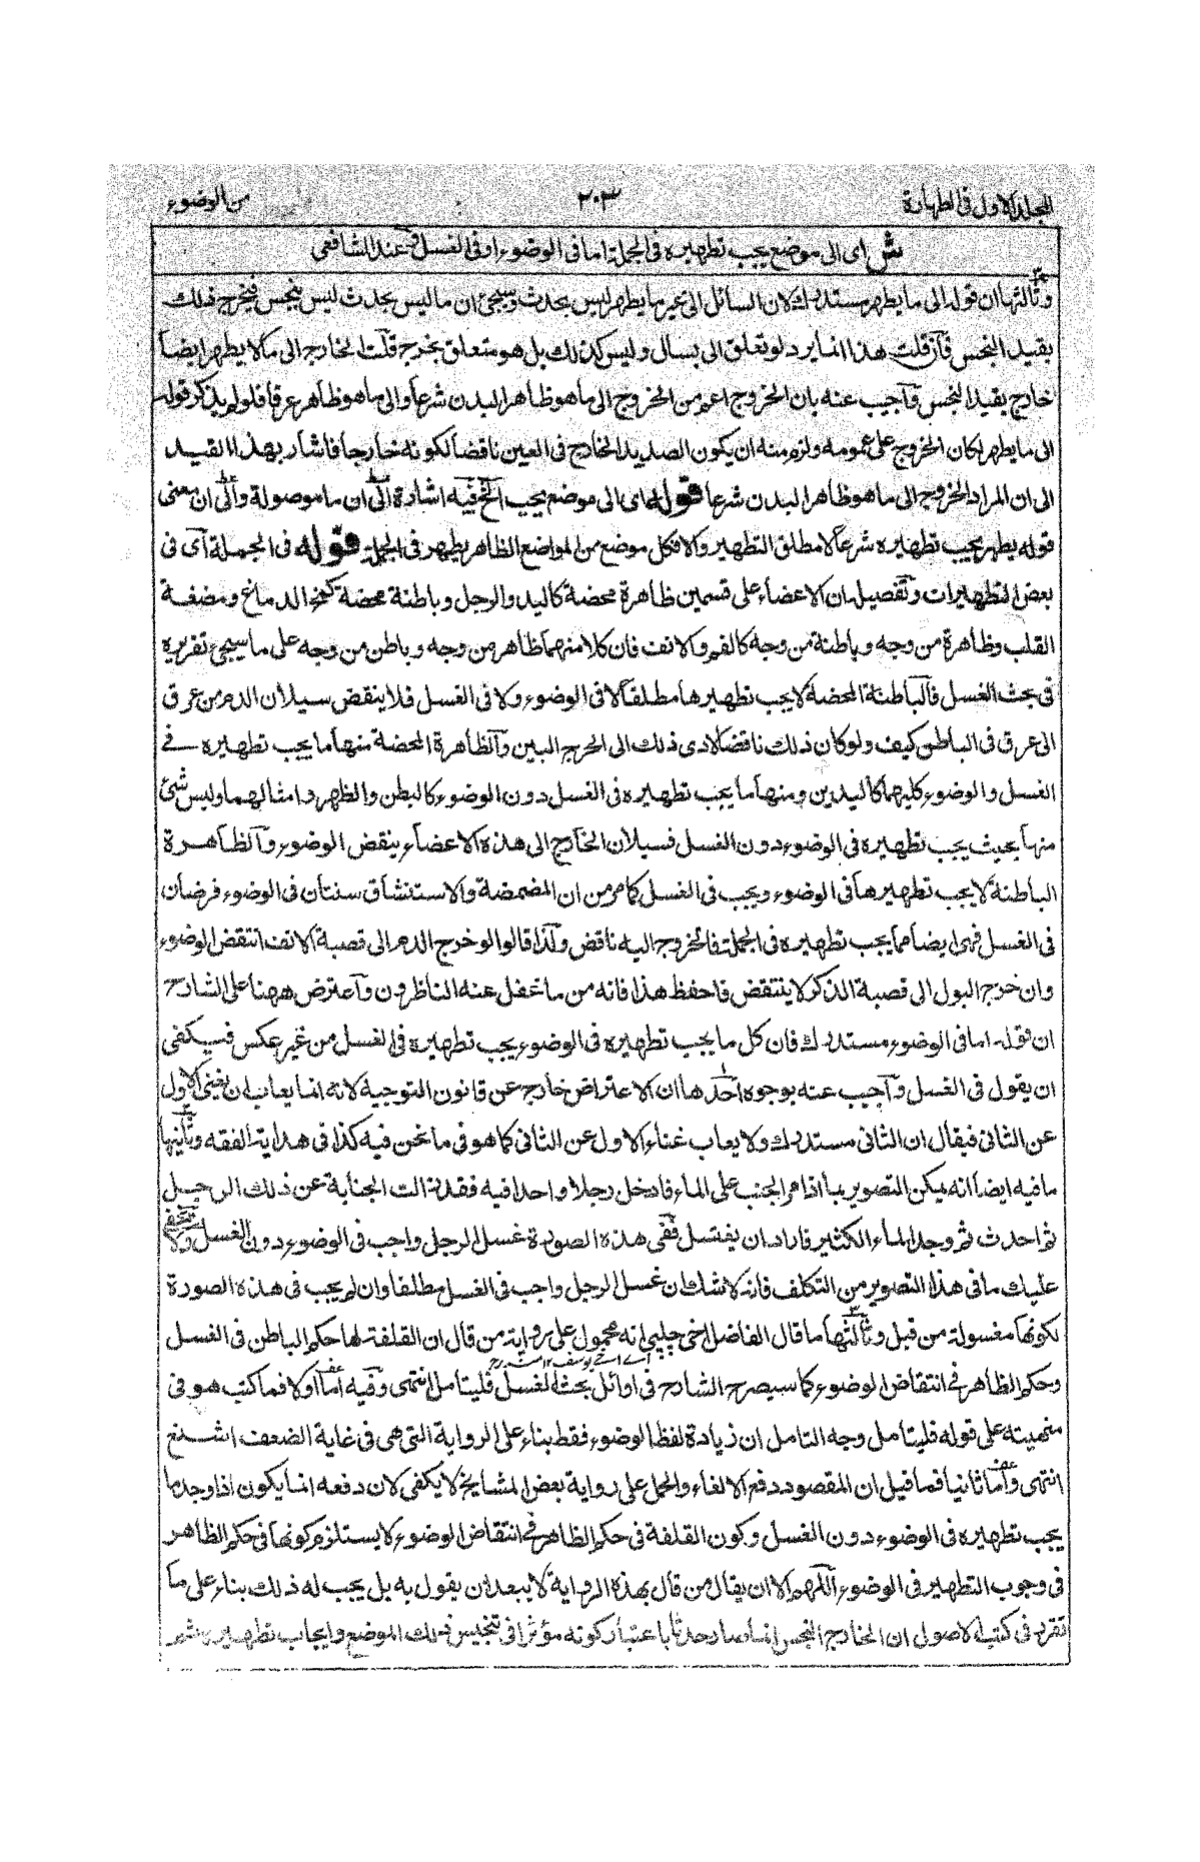 المجلد الاول فى الطهارة
٢٠٣
من الوضوء
ش اى الى موضع يجب تطهيره فى الجملة اما فى الوضوء او فى الغسل عند الشافعى
وثالثها ان قوله الى ما يطهر مستدرك لان السائل الى غير ما يطهر ليس بحدث وسيجئ ان ما ليس بحدث ليس بنجس فيخرج ذلك
بقيد النجس فان قلت هذا انما يرد لو تعلق الى بسال وليس كذلك بل هو متعلق بخرج قلت الخارج الى ما لا يطهر ايضا
خارج بقيد النجس واجيب عنه بان الخروج اعم من الخروج الى ما هو ظاهر البدن شرعا والى ما هو ظاهر عرفا فلو لم يذكر قوله
الى ما يطهر لكان الخروج على عمومه ولزم منه ان يكون الصديد الخارج فى العين ناقضا لكونه خارجا فاشار بهذا القيد
الى ان المراد الخروج الى ما هو ظاهر البدن شرعا قوله اى الى موضع يجب الخ فيه اشارة الى ان ما موصولة والى ان معنى
قوله يطهر يجب تطهيره شرعا لا مطلق التطهير والا فكل موضع من المواضع الظاهر يطهر فى الجملة قوله فى الجملة اى فى
بعض التطهيرات وتفصيله ان الاعضاء على قسمين ظاهرة محضة كاليد والرجل وباطنة محضة كمخ الدماغ ومضغة
القلب وظاهرة من وجه وباطنة من وجه كالفم والانف فان كلا منهما ظاهر من وجه وباطن من وجه على ما سيجئ تقريره
فى بحث الغسل فالباطنة المحضة لا يجب تطهيرها مطلقا لا فى الوضوء ولا فى الغسل فلا ينقض سيلان الدم من عرق
الى عرق فى الباطن كيف ولو كان ذلك ناقضا لادى ذلك الى الحرج البين والظاهرة المحضة منها ما يجب تطهيره فى
الغسل والوضوء كليهما كاليدين ومنها ما يجب تطهيره فى الغسل دون الوضوء كالبطن والظهر وامثالهما وليس شئ
منها بحيث يجب تطهيره فى الوضوء دون الغسل فسيلان الخارج الى هذه الاعضاء ينقض الوضوء والظاهرة
الباطنة لا يجب تطهيرها فى الوضوء ويجب فى الغسل كما مر من ان المضمضة والاستنشاق سنتان فى الوضوء فرضان
فى الغسل فهما ايضا مما يجب تطهيره فى الجملة فالخروج اليه ناقض ولذا قالوا لو خرج الدم الى قصبة الانف انتقض الوضوء
وان خرج البول الى قصبة الذكر لا ينتقض فاحفظ هذا فانه من ما غفل عنه الناظرون واعترض ههنا على الشارح
ان قوله اما فى الوضوء مستدرك فان كل ما يجب تطهيره فى الوضوء يجب تطهيره فى الغسل من غير عكس فيكفى
ان يقول فى الغسل واجيب عنه بوجوه احدها ان الاعتراض خارج عن قانون التوجيه لانه انما يعاب ان يغنى الاول
عن الثانى فيقال ان الثانى مستدرك ولا يعاب غناء الاول عن الثانى كما هو فى ما نحن فيه كذا فى هداية الفقه وثانيها
ما فيه ايضا انه يمكن التصوير بما اذا مر الجنب على الماء فادخل رجلا واحدا فيه فقد زالت الجنابة عن ذلك الرجل
ثم احدث ثم وجد الماء الكثير فاراد ان يغتسل ففى هذه الصورة غسل الرجل واجب فى الوضوء دون الغسل ولا يخفى
عليك ما فى هذا التصوير من التكلف فانه لا شك ان غسل الرجل واجب فى الغسل مطلقا وان لم يجب فى هذه الصورة
لكونها مغسولة من قبل وثالثها ما قال الفاضل اخى چلپى انه محمول على رواية من قال ان القلفة لها حكم الباطن فى الغسل
وحكم الظاهر فى انتقاض الوضوء كما سيصرح الشارح فى اوائل بحث الغسل فليتامل انتهى وفيه اما اولا فما كتب هو فى
منهيته على قوله فليتامل وجه التامل ان زيادة لفظ الوضوء فقط بناء على الرواية التى هى فى غاية الضعف اشنع
انتهى واما ثانيا فما قيل ان المقصود دفع الالغاء والحمل على رواية بعض المشايخ لا يكفى لان دفعه انما يكون اذا وجد ما
يجب تطهيره فى الوضوء دون الغسل وكون القلفة فى حكم الظاهر فى انتقاض الوضوء لا يستلزم كونها فى حكم الظاهر
فى وجوب التطهير فى الوضوء اللهم الا ان يقال من قال بهذه الرواية لا يبعد ان يقول به بل يجب له ذلك بناء على ما
تقرر فى كتب الاصول ان الخارج النجس انما صار حدثا باعتبار كونه مؤثرا فى تنجيس ذلك الموضع وايجاب تطهيره